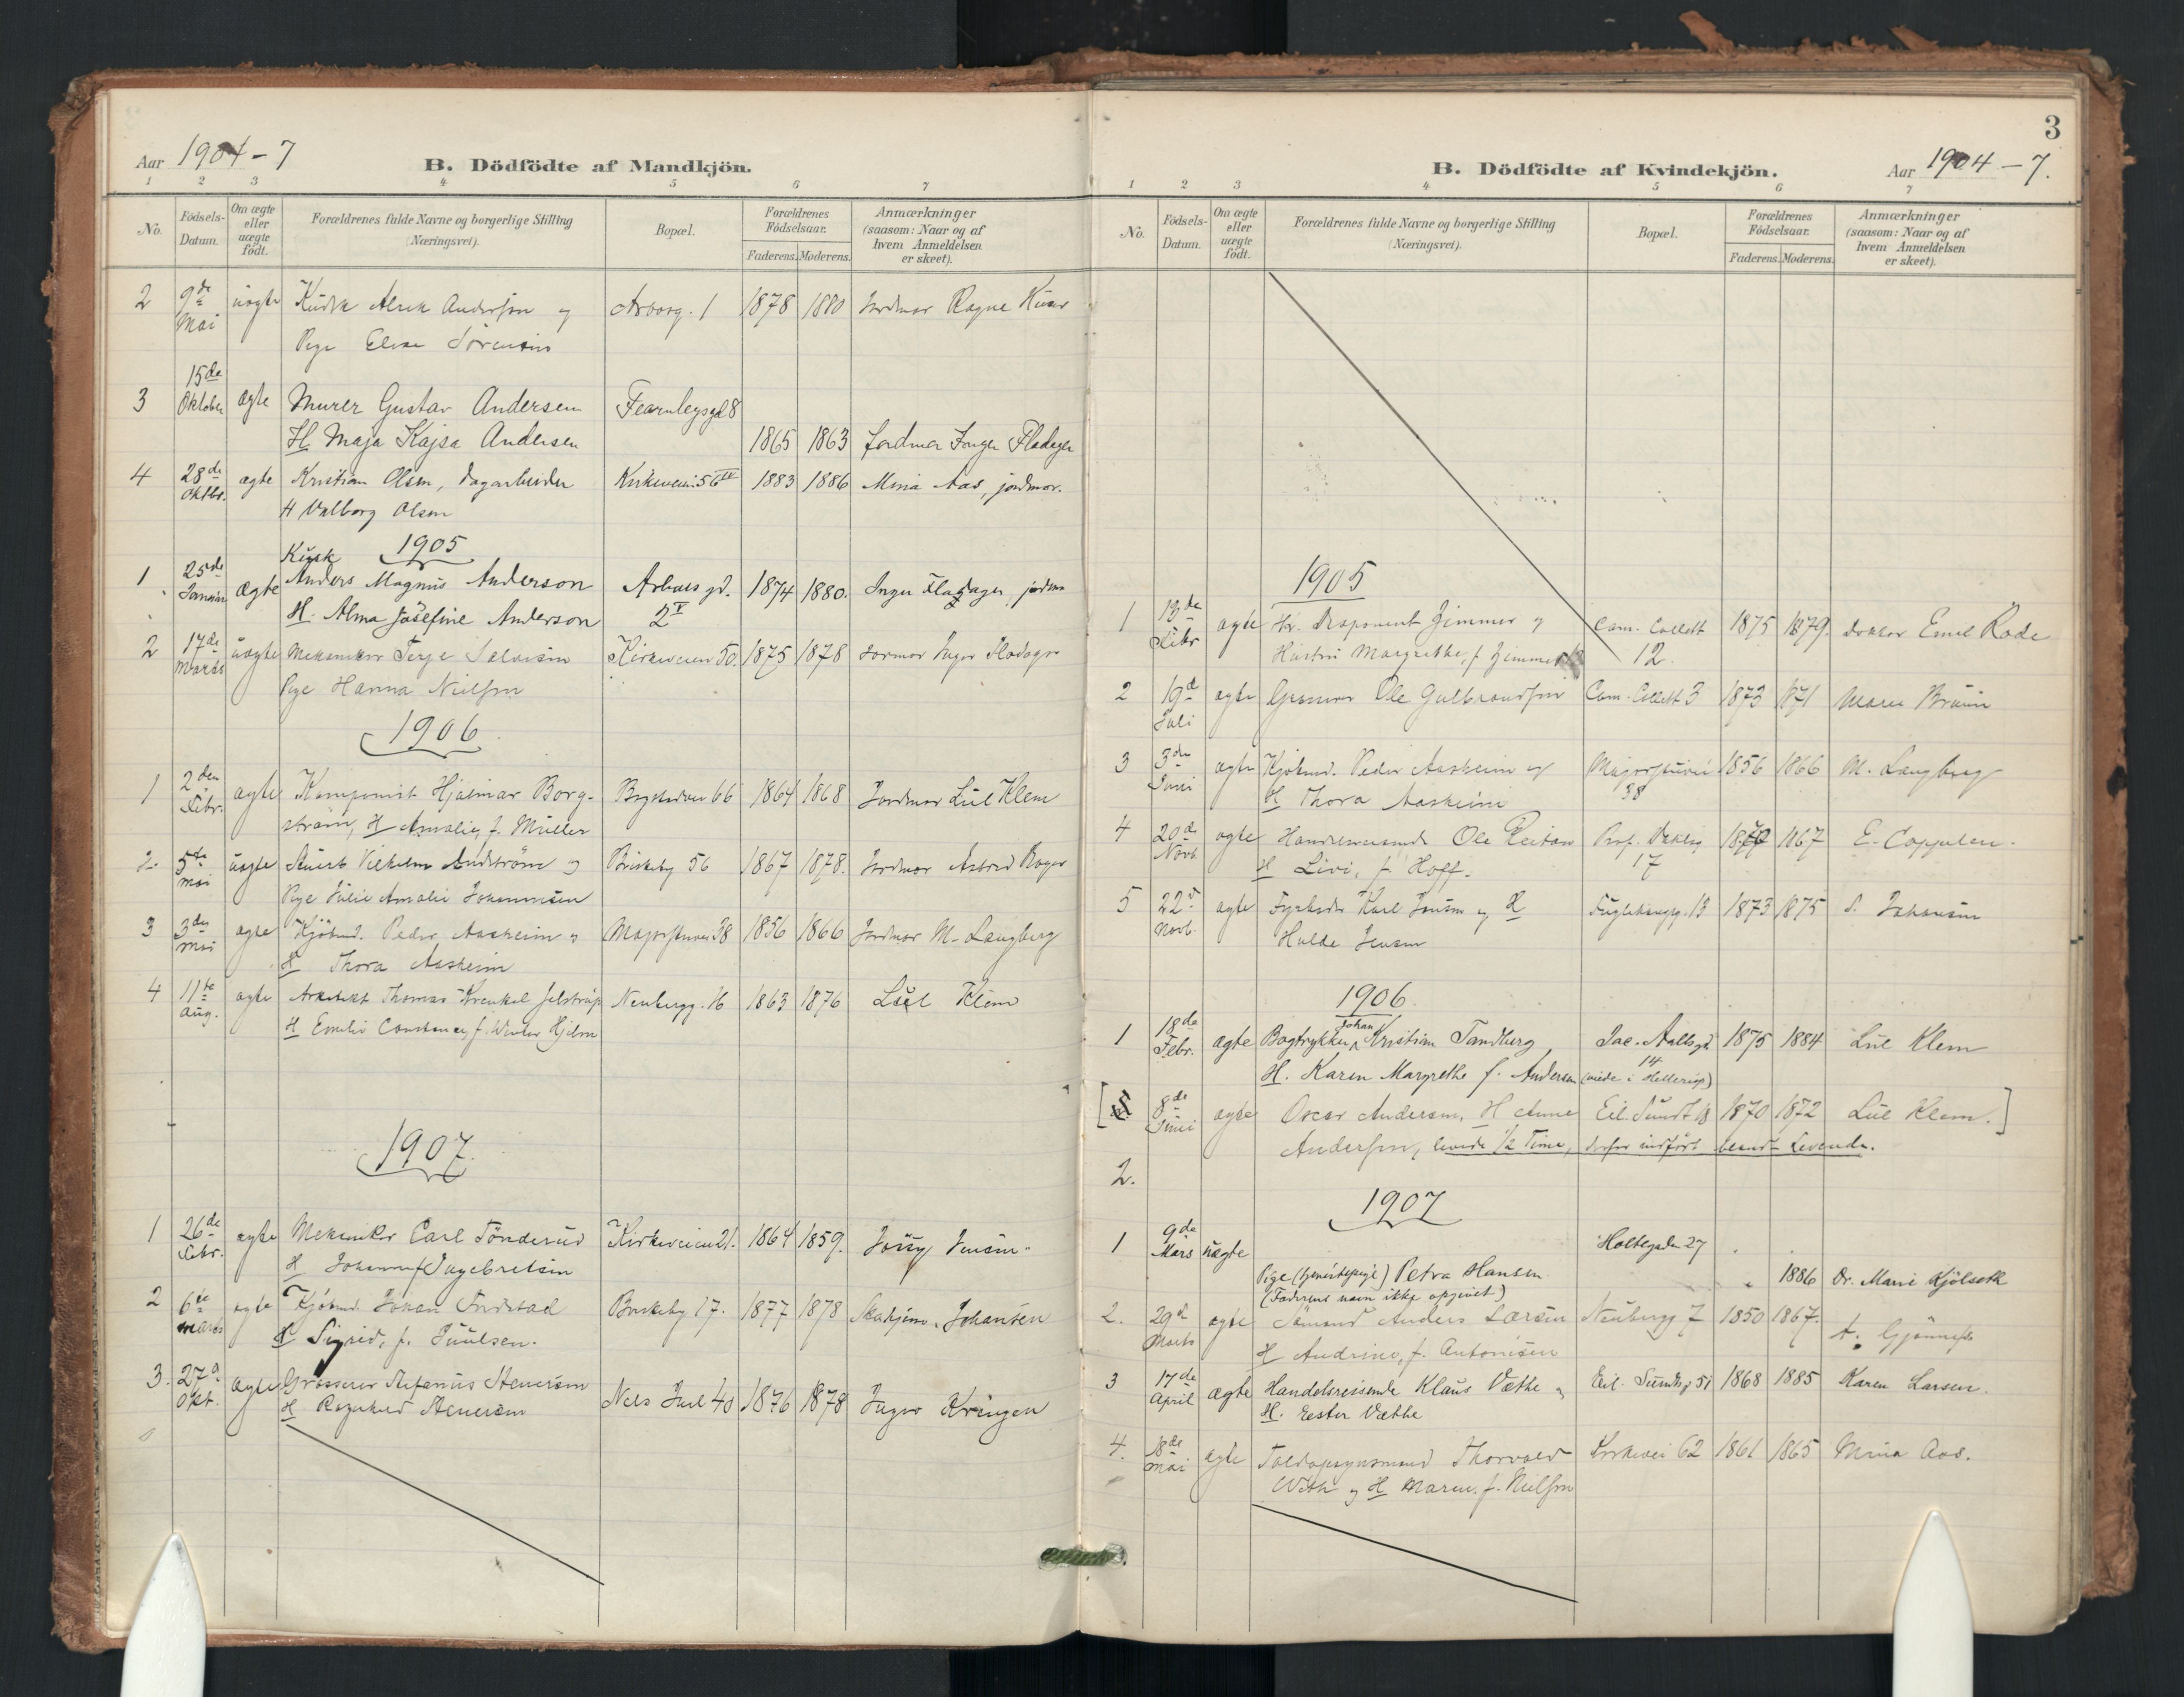 Aar 1904-7
B. Dödfödte af Mandkjön.
1 2 3 4 5 6 7
No.
Födsels-Datum.
Om ægte eller uægte födt.
Forældrenes fulde Navne og borgerlige Stilling (Næringsvei).
Bopæl.
Forældrenes Födselsaar.
Faderens. Moderens.
Anmærkninger (saasom: Naar og af hvem Anmeldelsen er skeet).
2 9de Mai uægte Kudsk Andersen og 1 1878 1880 Jordmor Ragne
Pige Elise Sörensen
3 15de Oktober ægte Murer Gustav Andersen Fearnleysgd 8
H. Maja Kajsa Andersen 1865 1863 Jordmor Inger Fladager
4 28de Oktbr. ægte Kristian Olsen, Dagarbeider Kirkeveien 56 IV 1883 1886 Mina Aas, jordmor.
H Valborg Olsen
1905
1 25de Januar Ægte Kusk Anders Magnus Anderson Arboesgd. 1874 1880. Inger Fladager, jordm
H. Alma Josefine Anderson 2 V
2 17de Marts uægte Mekaniker Terje Kirkeveien 50. 1875 1878 Jormor Inger Fladager
Pige Hanna Nielsen
1906
1 2den Febr. ægte Komponist Hjalmar Borg- 66 1864 1868 Jordmor Lul Klem
ström, H Amalie, f. Müller
2. 5te Mai uægte Vilhelm Andström og Briskeby 56 1867 1878. Jordmor Astrid
Pige Julie Amalie Johannesen
3 3die Mai ægte Kjöbmd. Peder Aasheim og Majorstuvei 38 1856 1866 Jordmor M. Langberg
H Thora Aasheim
4 11te Aug. ægte Arkitekt Thomas Jelstrup Neubergg. 16 1863 1876 Lul Klem
H Emilie Constance, f. Winter Hjelm
1907.
1 26de Febr. ægte Mekaniker Carl Tönderud Kirkeveien 21. 1864 1859.
H Johanne f. Ingebretsen
2 6te Marts ægte Kjöbmd. Johan Briskeby 17. 1877 1878 Johansen
H Sigrid, f. Juulsen.
3. 27d Okt. ægte Grosserer Stefanus Stenersen Nels Juel 40 1876 1878 Inger Kringen
H Ragnhild Stenersen
3
B. Dödfödte af Kvindekjön.
Aar 1904-7.
1 2 3 4 5 6 7
No.
Födsels-Datum.
Om ægte eller uægte födt.
Forældrenes fulde Navne og borgerlige Stilling (Næringsvei).
Bopæl.
Forældrenes Födselsaar.
Faderens. Moderens.
Anmærkninger (saasom: Naar og af hvem Anmeldelsen er skeet).
1905
1 13de Febr ægte Hr. Disponent Zimmer og Cam. Collett 1875 1879. Doktor Emil Rode
Hustru Margrethe, f. Zimmer 12.
2 19d Juli ægte Ole Gulbrandsen Cam. Collett 3 1873 1871 Maren Bruun
3 3die Juni ægte Kjöbmd. Peder Aasheim og Majorstuvei 1856 1866 M. Langberg
H Thora Aasheim 38
4 20de Novb. ægte Handelsreisende Ole Reitan Prof. Dahlsg 1867 E. Cappelen.
H Livi, f. Hoff. 17
5 22d Novb. ægte Fyrböder Karl Jensen og H Fuglehaugg. 13 1873 1875 S. Johansen
Hulda Jensen
1906.
1 18de Febr. ægte Bogtrykker Johan Kristian Tandberg Jac. Aallsgd 1875 1884 Lul Klem
H. Karen Margrethe f. Andersen 14 (viede i Hellerup)
[ 8de Juni ægte Oscar Andersen, H Anne Eil. Sundt 18 1870 1872 Lul Klem. ]
Andersen, levede 1/2 Time, derfor indført blandt Levende.
2.
1907
1 9de Mars uægte Holtegaden 27
Pige (tjenestepige) Petra Hansen. 1886 Dr. Marie Kjölseth
(Faderens navn ikke opgivet)
2. 29d Marts ægte Sömand Anders Larsen Neubergg 7 1850 1867.
H Andrine, f. Antonisen
3 17de April ægte Handelsreisende Klaus Væthe og Eil. Sundtsg 51 1868 1885 Karen Larsen.
H. Ester Væthe
4. 18de Mai ægte Toldopsynsmand Thorvald Kirkevei 62 1861 1865 Mina Aas.
With og H Maren f. Nielsen